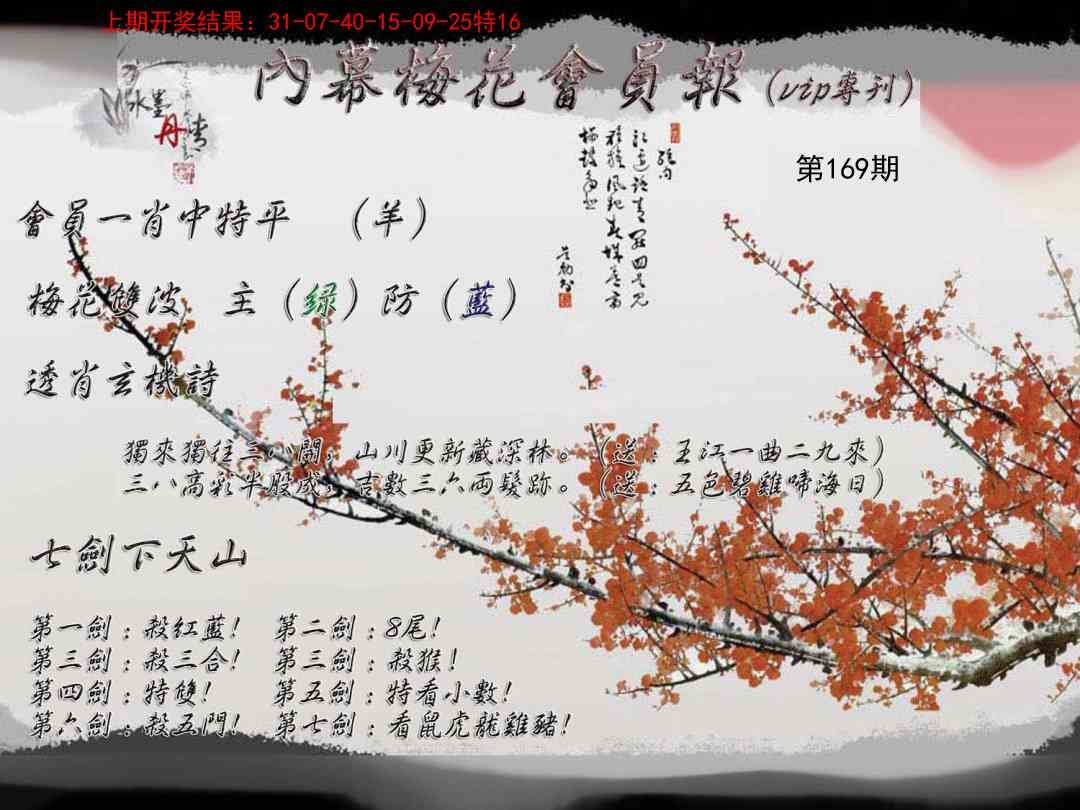 上期开奖结果：31-07-40-15-09-25特16
內幕梅花會員報(vip專刊)
水墨
丹青
第169期
會員一肖中特平 （羊）
梅花雙波 主（绿）防（藍）
透肖玄機詩
獨來獨往三八開，山川更新藏深林。（送：王江一曲二九來）
三八高彩半股成，吉數三六兩髮跡。（送：五色碧雞啼海日）
七劍下天山
第一劍：殺紅藍！ 第二劍：8尾！
第三劍：殺三合！ 第三劍：殺猴！
第四劍：特雙！ 第五劍：特看小數！
第六劍：殺五門！ 第七劍：看鼠虎龍雞豬！